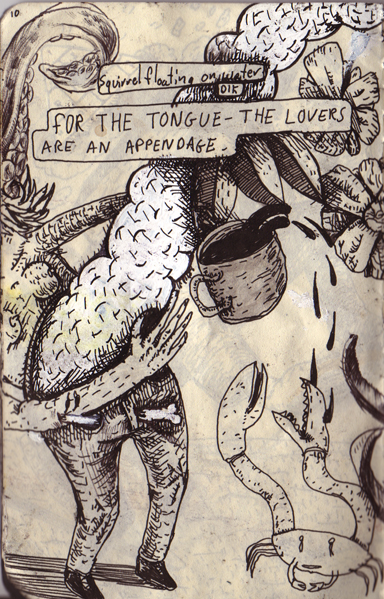 10
Squirrel floating on water
OIK
FOR THE TONGUE- THE LOVERS
ARE AN APPENDAGE.